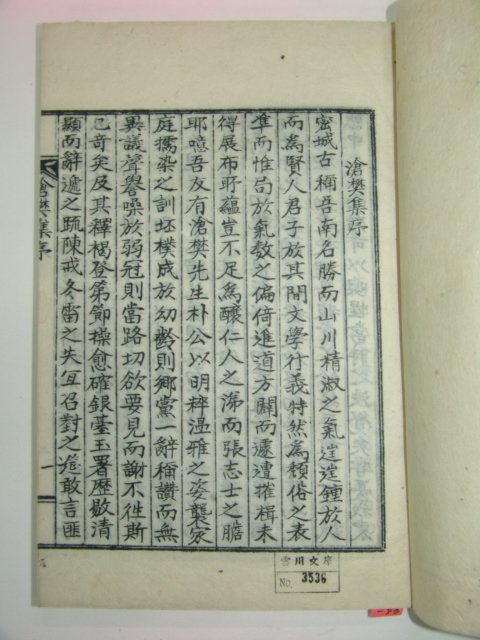 滄樊集序
密城古稱吾南名勝而山川精淑之氣逞逞鍾於人
而為賢人君子於其間文學行義特然為頹俗之表
準而惟局於氣數之偏倚進道方闢而遽遭摧楫未
得展布所蘊豈不足為釀仁人之涕而張志士之膽
耶噫吾友有滄樊先生朴公以明粹過雅之姿襲家
庭擩染之訓坯樸成於幼齡則鄉黨一辭稱讚而無
異議聲譽噪於弱冠則當路切欲要見而謝不徃斯
已奇矣及其釋褐登第節操愈確銀臺玉署歷敭清
顯而辭遞之疏陳戒冬雷之失宜召對之
敢言匪
滄樊集序
一
雲川文庫
No. 3536